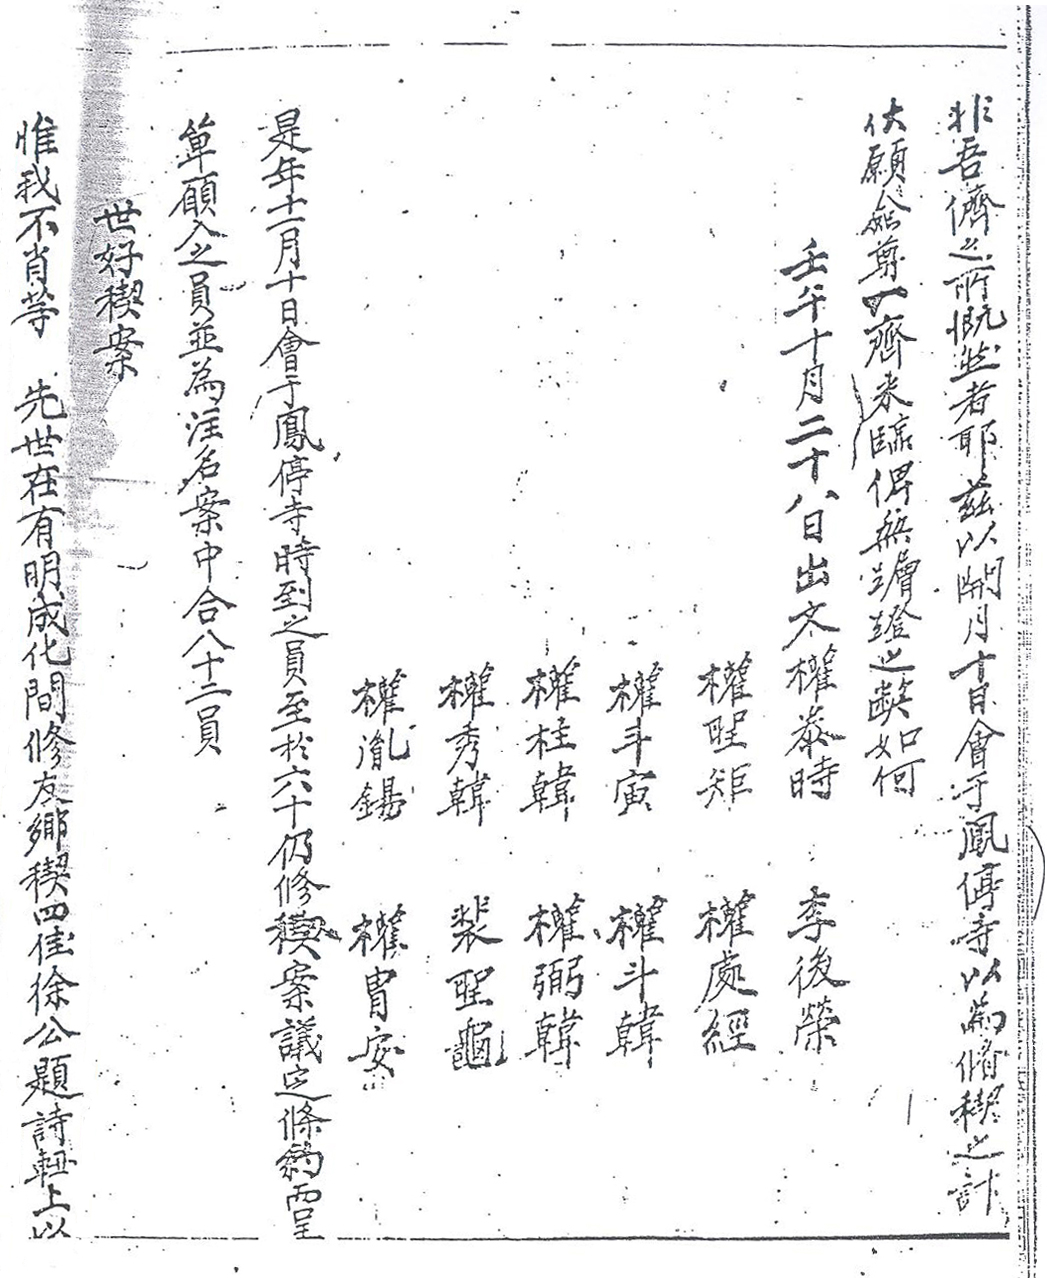 非吾儕之所慨然者耶玆以開月十日會于鳳停寺以爲脩稧之計
伏願僉尊一齊來臨俾無蹭蹬之弊如何
壬午十月二十八日出文權泰時 李後榮
權聖矩 權處經
權斗寅 權斗韓
權柱韓 權弼韓
權秀韓 裴聖龜
權胤錫 權胄安
是年十一月十日會于鳳停寺時到之員至於六十仍修稧案議定條約而呈
單願入之員並爲注名案中合八十二員
世好稧案
惟我不肖等 先世在有明成化間修友鄉稧四佳徐公題詩軸上以